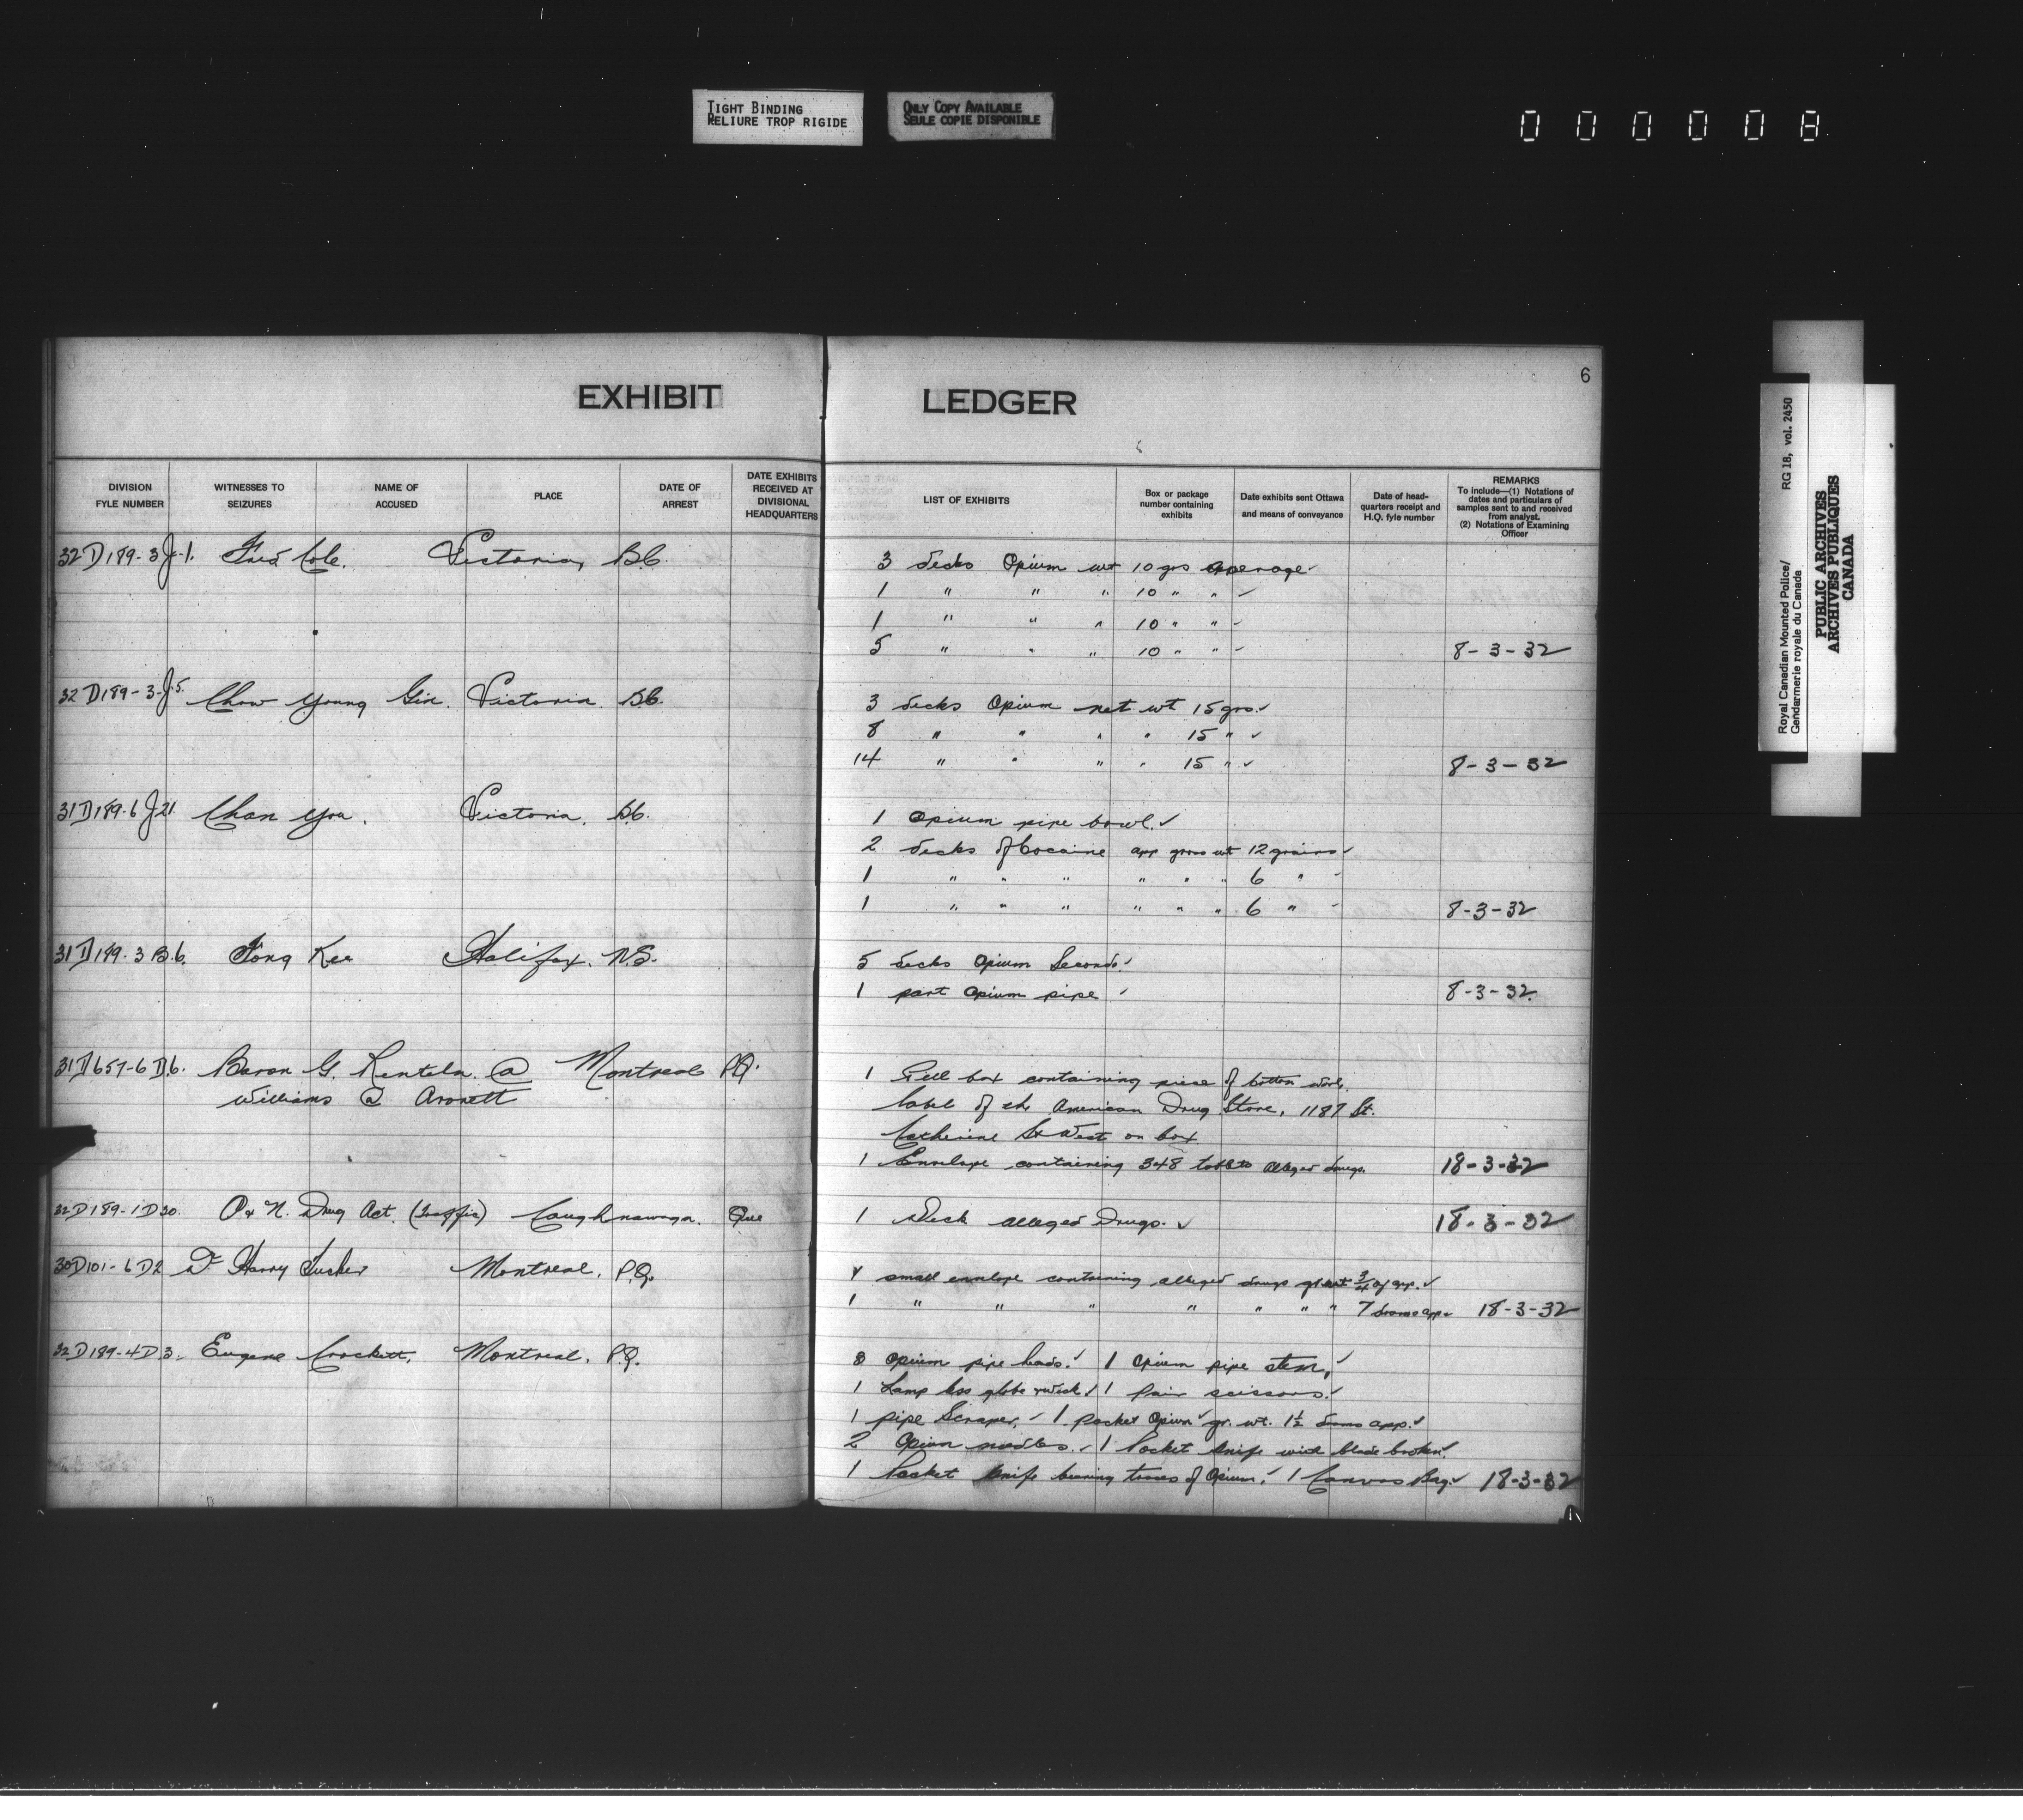 TIGHT BINDING
RELIURE TROP RIGIDE
ONLY COPY AVAILABLE
SEULE COPIE DISPONIBLE
000008
EXHIBIT LEDGER
6
DIVISION FYLE NUMBER
WITNESSES TO SEIZURES
NAME OF ACCUSED
PLACE
DATE OF ARREST
DATE EXHIBITS RECEIVED AT DIVISIONAL HEADQUARTERS
LIST OF EXHIBITS
Box or package number containing exhibits
Date exhibits sent Ottawa and means of conveyance
Date of head-quarters receipt and H.Q. fyle number
REMARKS
To include—(1) Notations of dates and particulars of samples sent to and received from analyst.
(2) Notations of Examining Officer
32 D 189-3 J-1. Fred Cole. Victoria, B.C.
3 decks Opium wt 10 grs average ✓
1 " " " 10 " " ✓
1 " " " 10 " " ✓
5 " " " 10 " " ✓ 8-3-32
32 D 189-3-J.5. Chow Young Gin. Victoria. B.C.
3 decks Opium net wt 15 grs. ✓
8 " " " " 15 " ✓
14 " " " " 15 " ✓ 8-3-32
31 D 189-6 J 21. Chan You. Victoria. B.C.
1 Opium pipe bowl. ✓
2 decks of Cocaine app gross wt 12 grains ✓
1 " " " " " " 6 " ✓
1 " " " " " " 6 " ✓ 8-3-32
31 D 189-3 B.6. Fong Kee Halifax. N.S.
5 decks Opium Seconds. ✓
1 part Opium pipe ✓ 8-3-32.
31 D 657-6 D.6. Baron G. Renteln @ Montreal P.Q.
Williams @ Aronett
1 Pill box containing piece of Cotton Wool.
label of the American Drug Store, 1187 St.
Catherine St West on box.
1 Envelope containing 348 tablets alleged drugs. 18-3-32
32 D 189-1 D 30. O & N. Drug Act. (Traffic) Caughnawaga. Que
1 Deck alleged Drugs. ✓ 18-3-32
30 D 101-6 D 2 Dr Harry Tucker Montreal, P.Q.
small envelope containing alleged drugs gr wt 3/4 oz app. ✓
1 " " " " " " " 7 drams app ✓ 18-3-32
32 D 189-4 D 3. Eugene Crockett, Montreal. P.Q.
8 Opium pipe heads. ✓ 1 Opium pipe stem, ✓
1 Lamp less globe & wick ✓ 1 Pair scissors. ✓
1 pipe Scraper. ✓ 1 packet Opium ✓ gr. wt. 1½ drams app. ✓
2 Opium needles. ✓ 1 Pocket knife with blade broken ✓
1 Pocket knife bearing traces of Opium. ✓ 1 Canvas Bag. ✓ 18-3-32
Royal Canadian Mounted Police/
Gendarmerie royale du Canada
RG 18, vol. 2450
PUBLIC ARCHIVES
ARCHIVES PUBLIQUES
CANADA